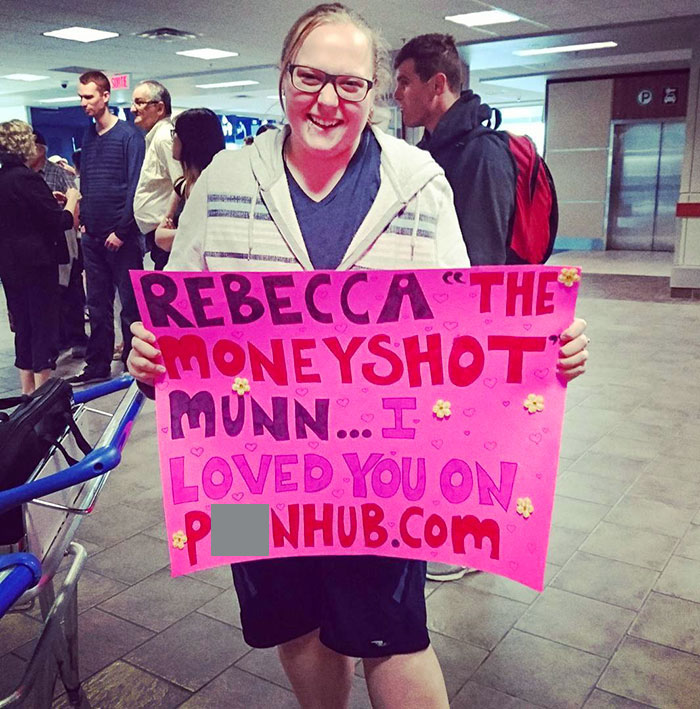 SORTIE
P
REBECCA "THE
MONEYSHOT"
MUNN... I
LOVED YOU ON
P NHUB.COM